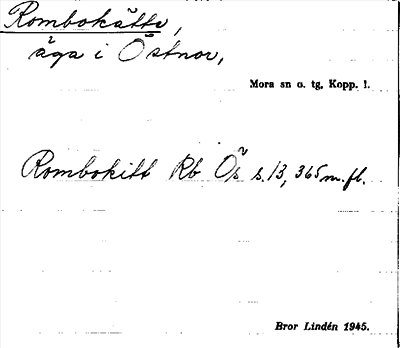 Rombokätte,
äga i Östnor,
Mora sn o. tg, Kopp. l.
Rombokitt Rb Ös s. 13, 365 m. fl.
Bror Lindén 1945.